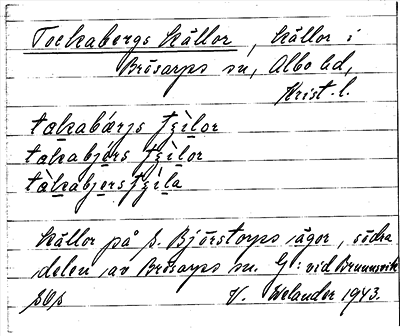 Tockabergs källor, källor i
Brösarps sn, Albo hd,
Krist. l.
takabǽrjs tʒìlor
takabjérs tʒìlor
tàkabjersтʒìla
källor på S. Björstorps ägor, södra
delen av Brösarps sn. G: vid Brunnsvik
V. Welander 1943.